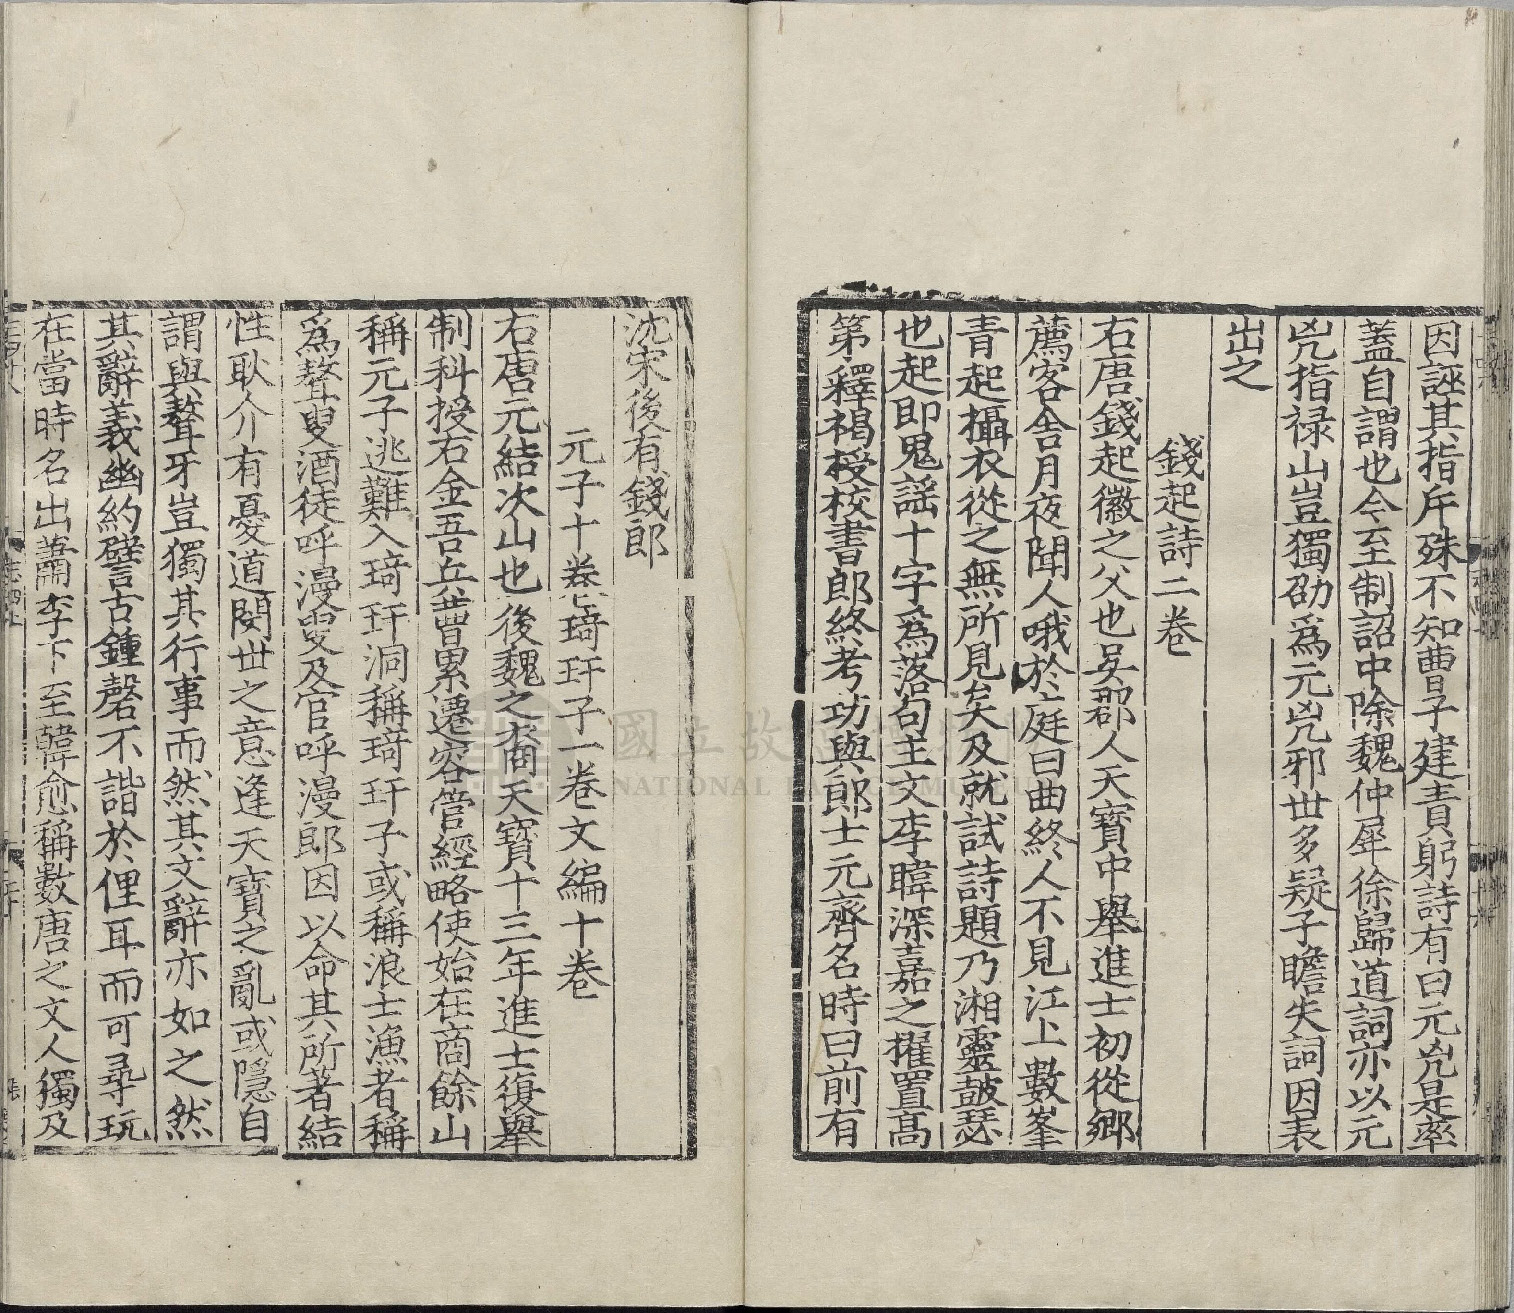 因誣其指斥殊不知曹子建責躬詩有曰元兇是率
蓋自謂也今至制詔中除魏仲犀徐歸道詞亦以元
兇指禄山豈獨劭為元兇邪世多疑子瞻失詞因表
出之
錢起詩二卷
右唐錢起徽之父也吳郡人天寶中舉進士初從鄉
薦客舍月夜聞人哦於庭曰曲終人不見江上數峯
青起攝衣從之無所見矣及就試詩題乃湘靈鼓瑟
也起即鬼謡十字為落句主文李暐深嘉之擢置髙
第釋褐授校書郎終考功與郎士元齊名時曰前有
沈宋後有錢郎
元子十卷琦玕子一卷文編十卷
右唐元結次山也後魏之裔天寶十三年進士復舉
制科授右金吾兵曹累遷容管經略使始在商餘山
稱元子逃難入琦玕洞稱琦玕子或稱浪士漁者稱
為聱叟酒徒呼漫叟及官呼漫郎因以命其所著結
性耿介有憂道閔世之意逢天寶之亂或隱自
謂與聱牙豈獨其行事而然其文辭亦如之然
其辭義幽約譬古鍾磬不諧於俚耳而可尋玩
在當時名出蕭李下至韓愈稱數唐之文人獨及
國立故宮博物院
NATIONAL PALACE MUSEUM